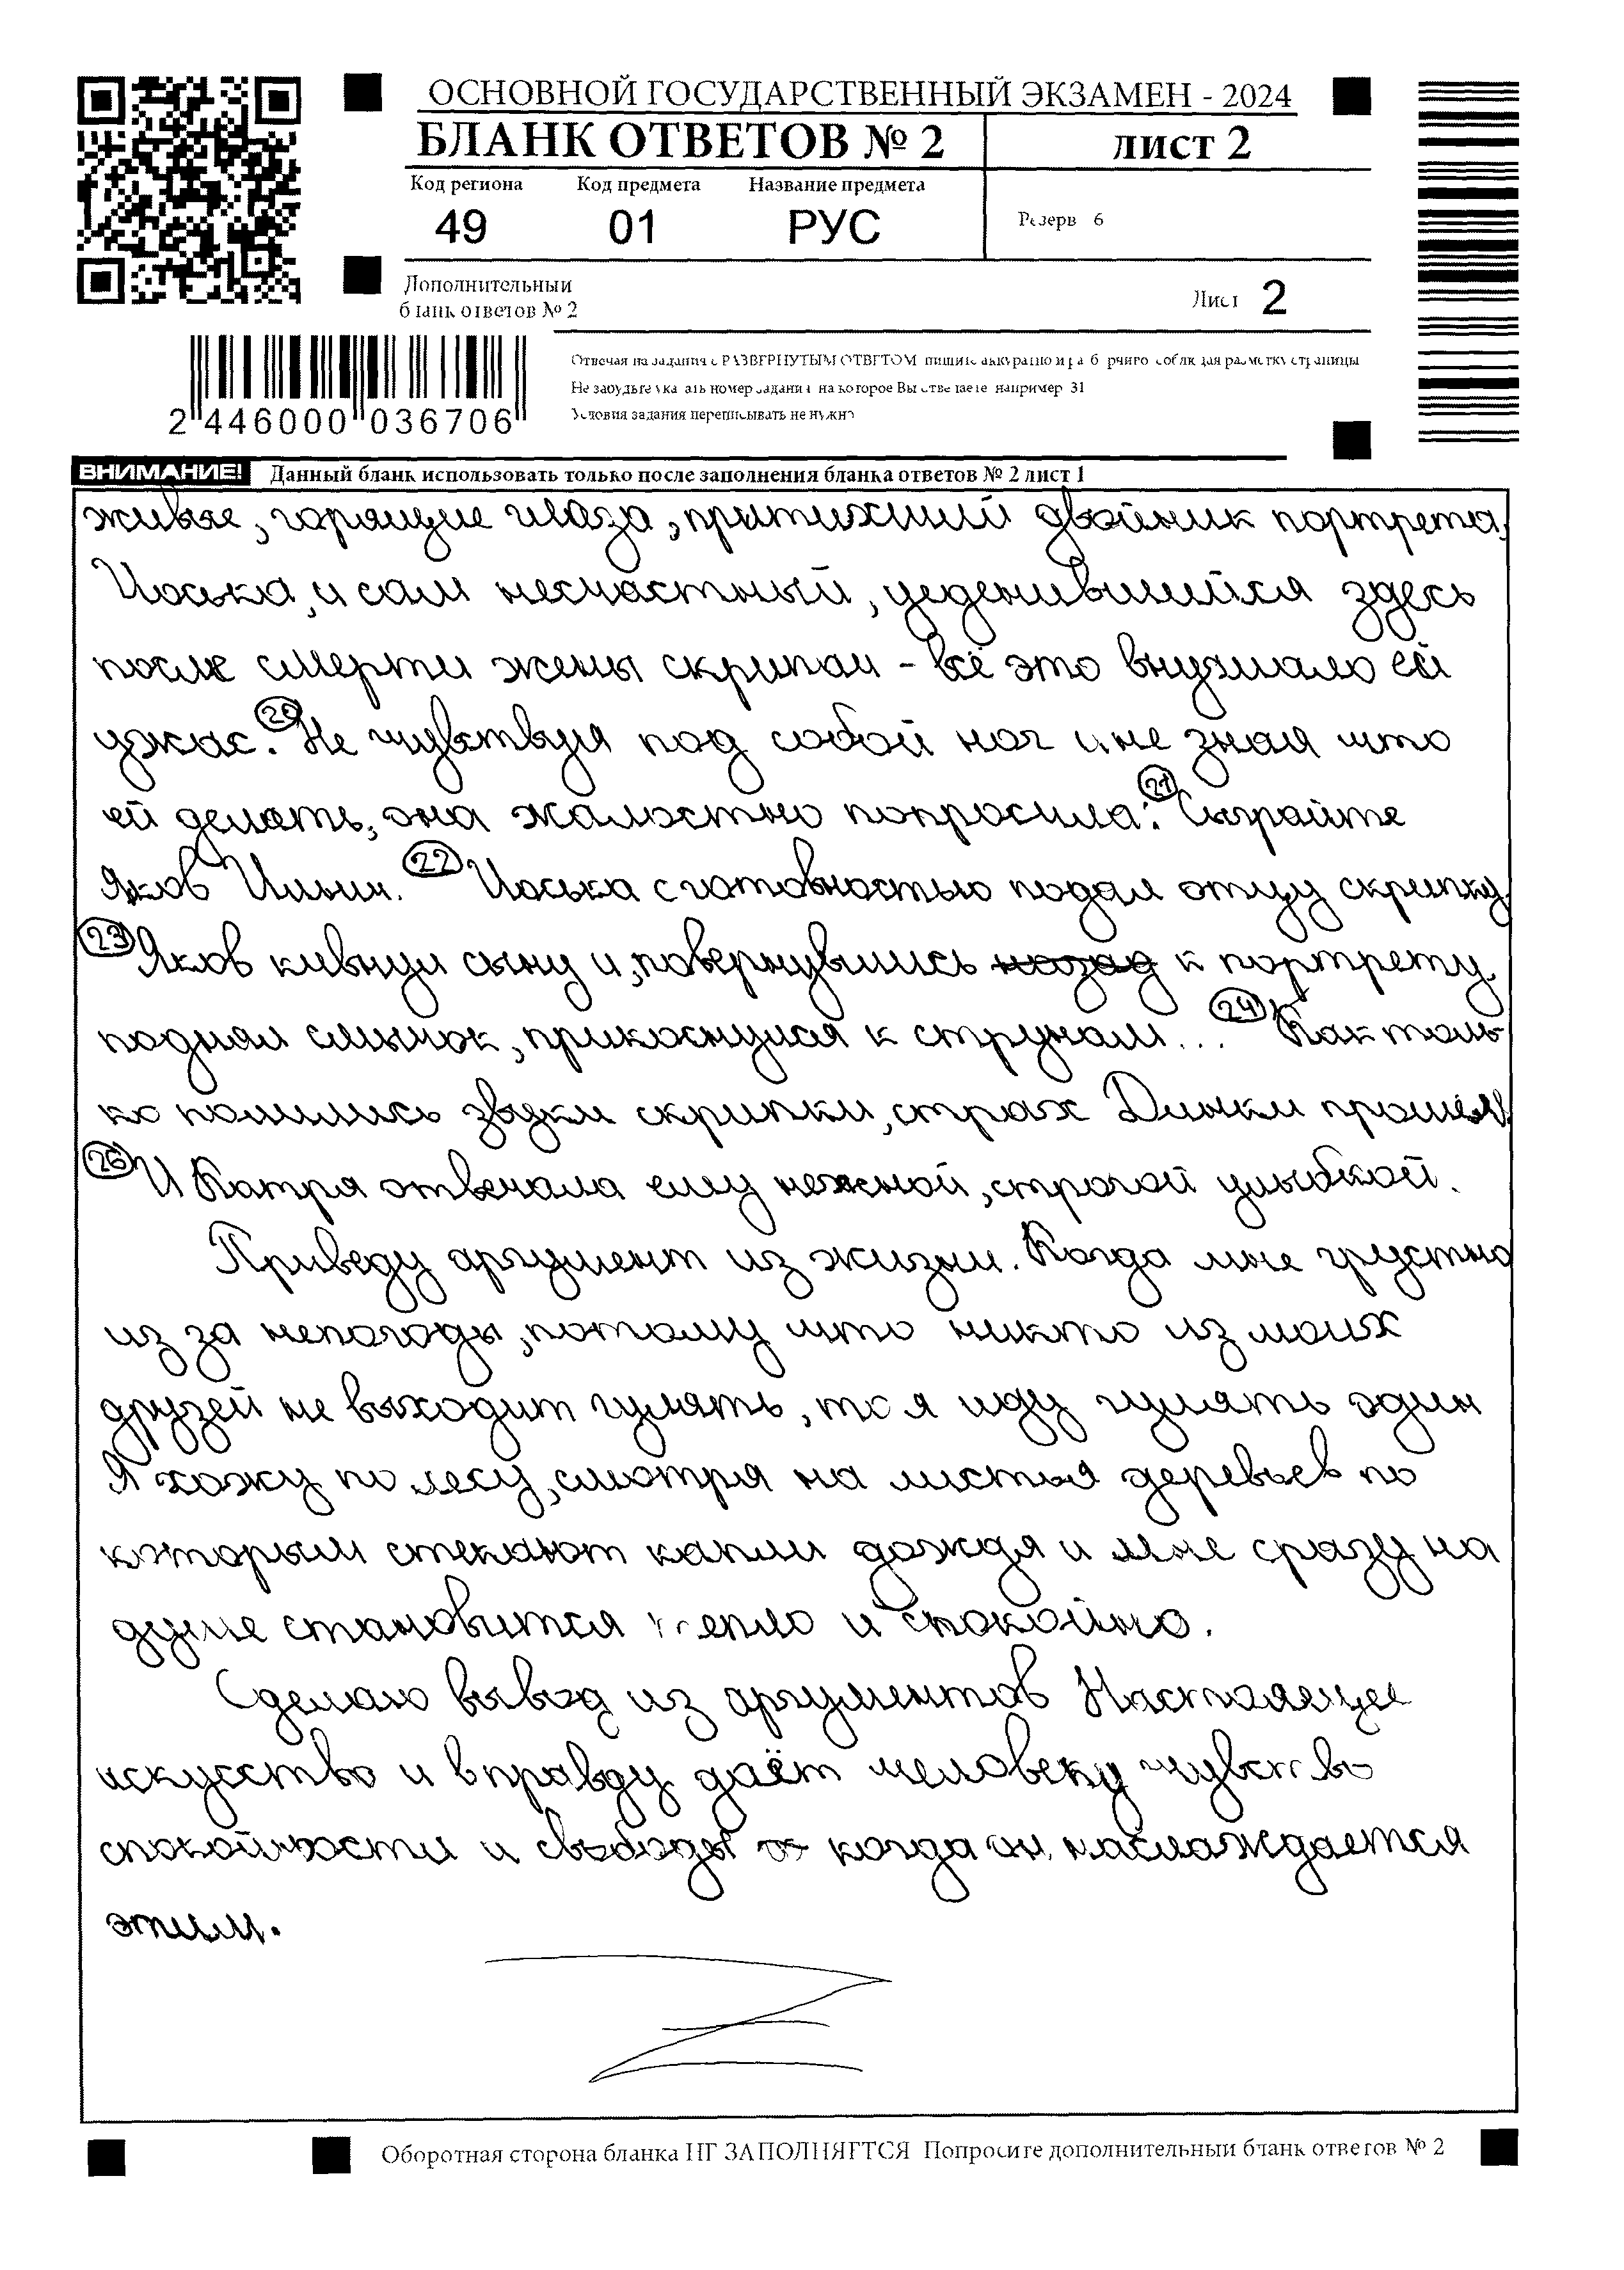 ОСНОВНОЙ ГОСУДАРСТВЕННЫЙ ЭКЗАМЕН - 2024
БЛАНК ОТВЕТОВ № 2
ЛИСТ 2
Код региона Код предмета Название предмета
49 01 РУС
Резерв 6
Дополнительный
бланк ответов № 2
Лист 2
Отвечая на задания с РАЗВЕРНУТЫМ ОТВЕТОМ пишите аккуратно и разборчиво соблюдая разметку страницы
Не забудьте указать номер задания на которое Вы отвечаете например 31
Условия задания переписывать не нужно
2 446000 036706
ВНИМАНИЕ! Данный бланк использовать только после заполнения бланка ответов № 2 лист 1
живые, горящие глаза, притихший двойник портрета,
Иоська, и сам несчастный, уеденившийся здесь
после смерти жены скрипач - всё это внушало ей
ужас. (20) Не чувствуя под собой ног и не зная что
ей делать, она жалостно попросила: (21) Сыграйте
Яков Ильич. (22) Иоська с готовностью подал отцу скрипку.
(23) Яков кивнул сыну и, повернувшись назад к портрету,
поднял смычок, прикоснулся к струнам... (24) Как толь
ко полились звуки скрипки, страх Динки прошёл
(26) И Катря отвечала ему нежной, строгой улыбкой.
Приведу аргумент из жизни. Когда мне грустно
из за непогоды, потому что никто из моих
друзей не выходит гулять, то я иду гулять один
Я хожу по лесу, смотря на листья деревьев по
которым стекают капли дождя и мне сразу на
душе становится тепло и спокойно.
Сделаю вывод из аргументов Настоящее
искусство и вправду даёт человеку чувство
спокойности и свободы когда он наслаждается
этим.
Оборотная сторона бланка НЕ ЗАПОЛНЯЕТСЯ Попросите дополнительный бланк ответов № 2